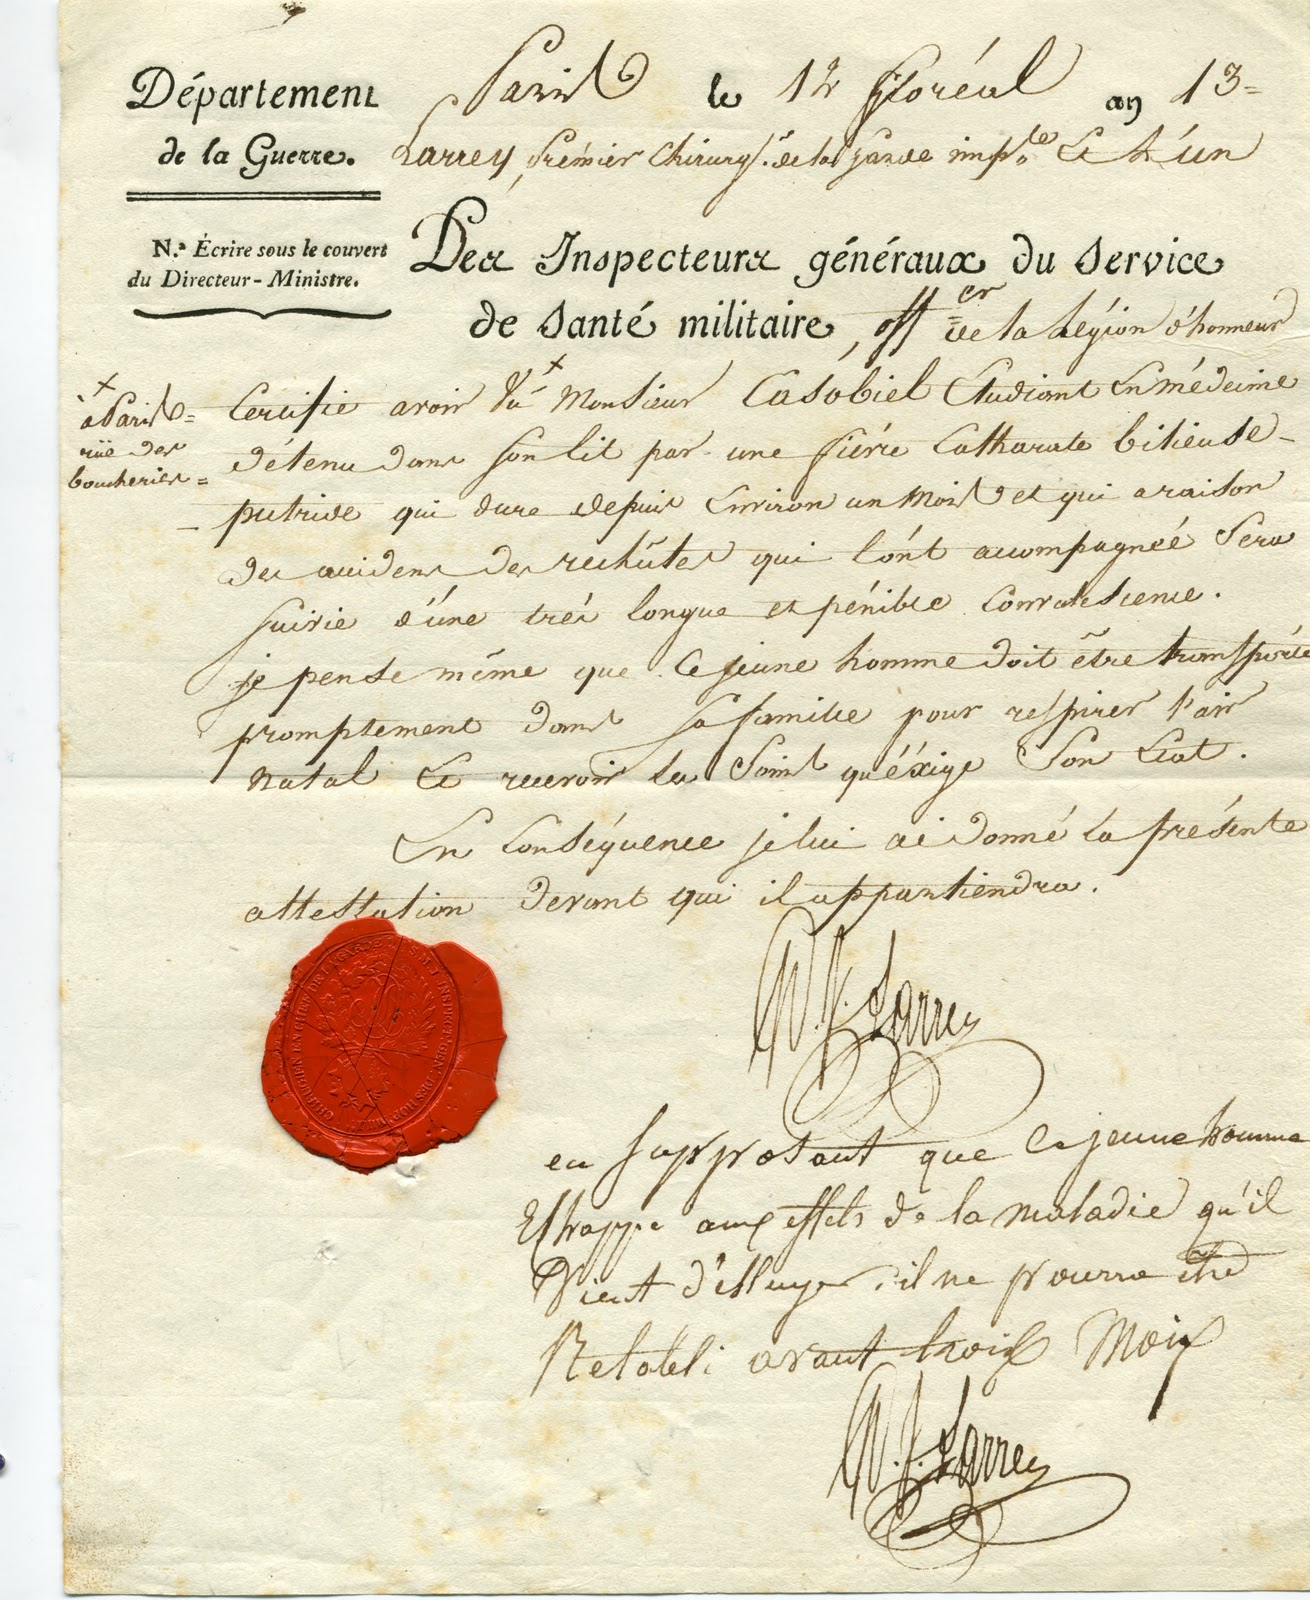 Département
de la Guerre.
N.ª Écrire sous le couvert
du Directeur-Ministre.
Paris le 12 floréal an 13=
Larrey, premier chirurg.n de la garde imp.le Et l'un
Des Inspecteurs généraux du service
de santé militaire, off.er de la Légion d'honneur
x
à Paris=
rüe des
boucheries=
Certifie avoir Vu x Monsieur Casobiel Etudiant En médecine
détenu dans son lit par une fièvre Catharale bilieuse-
putride qui dure depuis Environ un mois et qui a raison
des accidens des rechûtes qui l'ónt accompagnéé Sera
suivie d'une trés longue et pénible Convalescence.
je pense même que Ce jeune homme doit être transporté
promptement dans sa famille pour respirer l'air
natal Et recevoir les Soins qu'éxige Son Etat.
En Conséquence je lui ai donné la présente
attestation devant qui il appartiendra.
D. J. Larrey
CHIRURGIEN EN CHEF DE LA GARDE S.M.I. INSPECT. GEN. DES HOP.
en supposant que Ce jeune homme
Eshappe aux effets de la maladie qu'il
Vient d'essuyer, il ne pourra être
Retabli avant trois Mois
D. J. Larrey